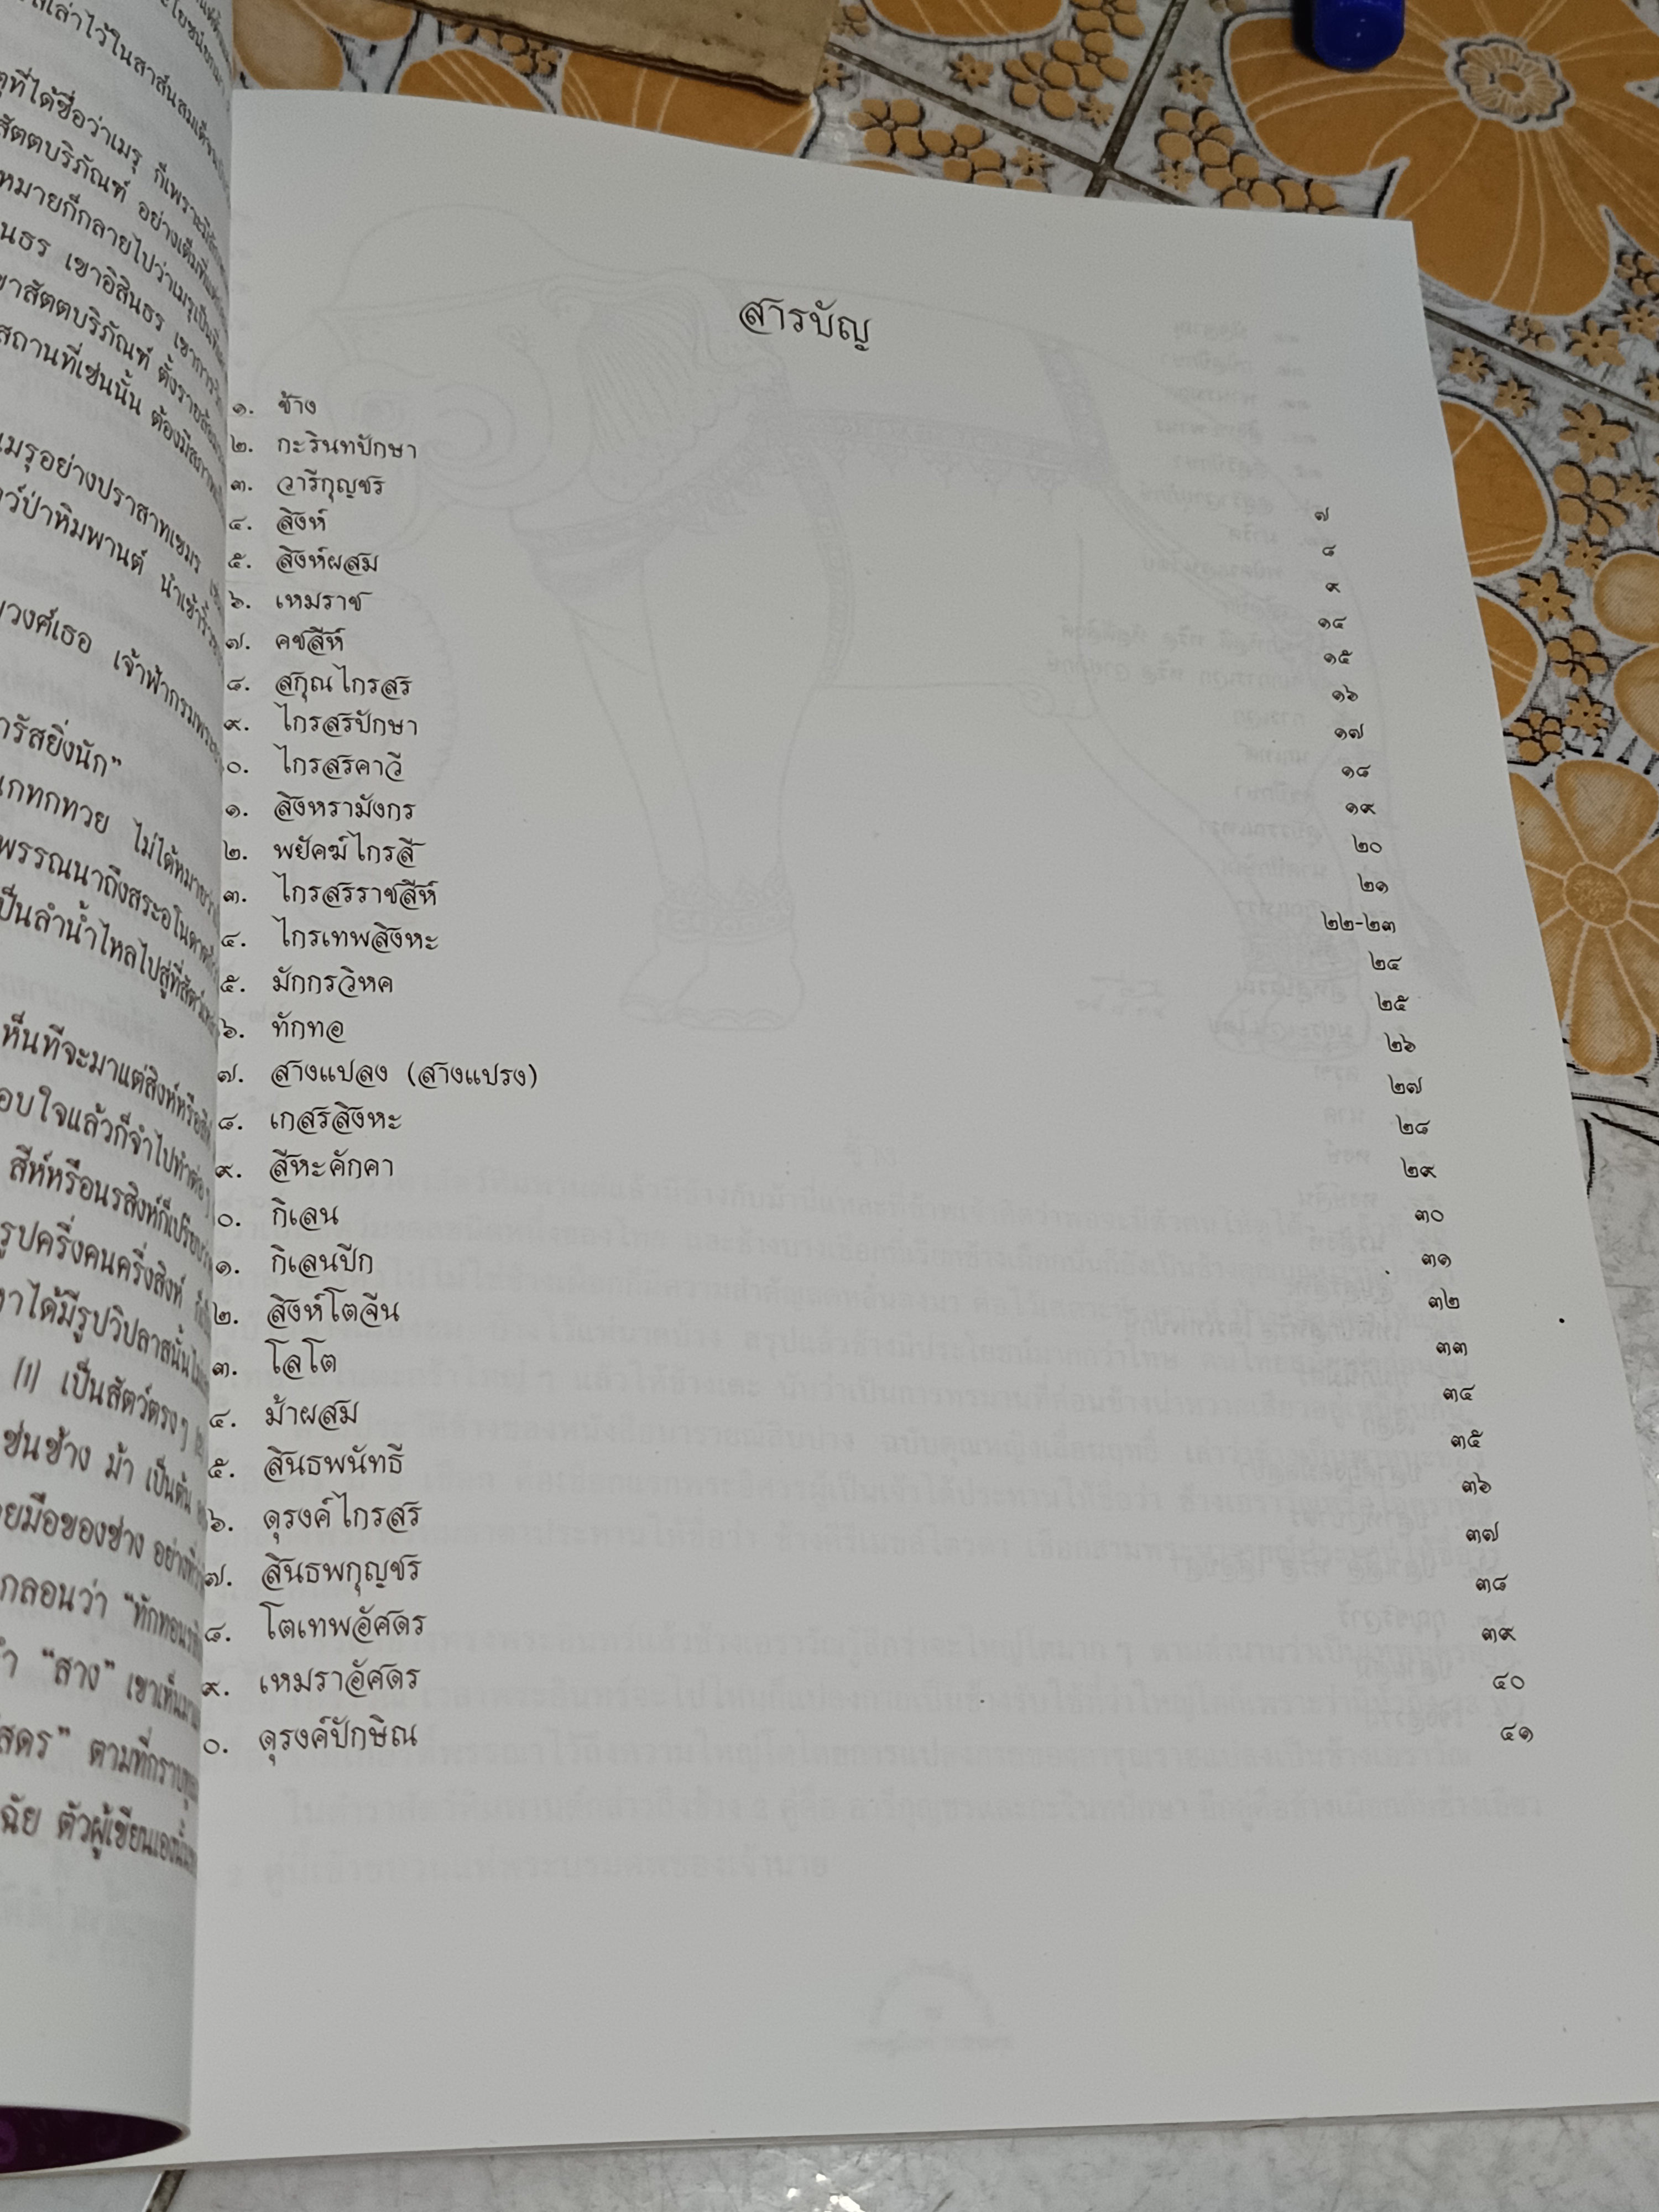 เล่าไว้ในสาส์นสมเด็จ
ที่ได้ชื่อว่าเมรุ ก็เพราะ
สัตตบริภัณฑ์ อย่างเต็มที่
หมายก็กลายไปว่าเมรุเป็นที่
เขาอิสินธร เขาการวิก
สัตตบริภัณฑ์ ตั้งราย
สถานที่เช่นนั้น ต้องมีสภาพ
เมรุอย่างปราสาทเขมร
ป่าหิมพานต์ นำเข้าริ้ว
วงศ์เธอ เจ้าฟ้ากรมพระ
รัสยิ่งนัก”
ไม่ได้หมาย
พรรณนาถึงสระอโนดาต
เป็นลำน้ำไหลไปสู่ทิศ
เห็นทีจะมาแต่สิงห์หรือ
อบใจแล้วก็จำไปทำต่อๆ
สีห์หรือนรสิงห์ก็เปรียบ
รูปครึ่งคนครึ่งสิงห์
ได้มีรูปวิปลาสนั้น
เป็นสัตว์ตรงๆ
เช่นช้าง ม้า เป็นต้น
มือของช่าง อย่างที่
กลอนว่า “ทักทอ
“สาง” เขาเห็น
ตามที่กราบทูล
ตัวผู้เขียนเอง
สารบัญ
๑. ช้าง ๗
๒. กะรินทปักษา ๘
๓. วารีกุญชร ๙
๔. สิงห์ ๑๔
๕. สิงห์ผสม ๑๕
๖. เหมราช ๑๖
๗. คชสีห์ ๑๗
๘. สกุณไกรสร ๑๘
๙. ไกรสรปักษา ๑๙
๐. ไกรสรคาวี ๒๐
๑. สิงหรามังกร ๒๑
๒. พยัคฆ์ไกรสี ๒๒-๒๓
๓. ไกรสรราชสีห์ ๒๔
๔. ไกรเทพสิงหะ ๒๕
๕. มักกรวิหค ๒๖
๖. ทักทอ ๒๗
๗. สางแปลง (สางแปรง) ๒๘
๘. เกสรสิงหะ ๒๙
๙. สีหะคักคา ๓๐
๐. กิเลน ๓๑
๑. กิเลนปีก ๓๒
๒. สิงห์โตจีน ๓๓
๓. โลโต ๓๔
๔. ม้าผสม ๓๕
๕. สินธพนัทธี ๓๖
๖. ดุรงค์ไกรสร ๓๗
๗. สินธพกุญชร ๓๘
๘. โตเทพอัศดร ๓๙
๙. เหมราอัศดร ๔๐
๐. ดุรงค์ปักษิณ ๔๑